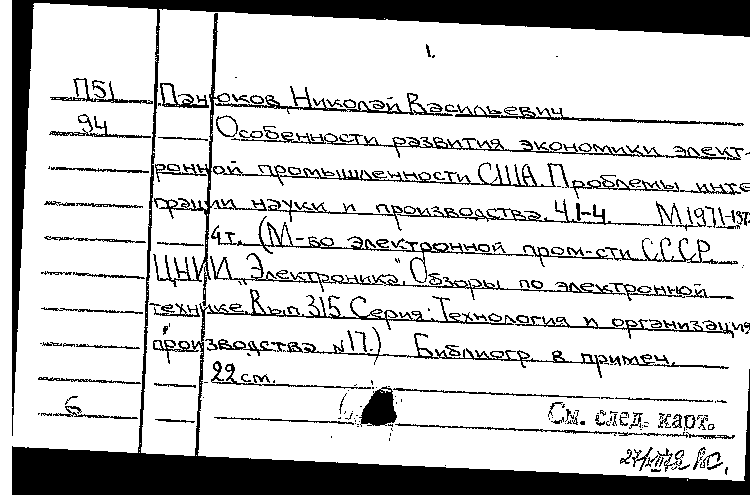 1.
П51 Панюков, Николай Васильевич
94 Особенности развития экономики элект-
ронной промышленности США. Проблемы инте
грации науки и производства. Ч.1-4. М, 1971-197
4т. (М-во электронной пром-сти СССР
ЦНИИ „Электроника". Обзоры по электронной
технике. Вып. 315 Серия: Технология и организация
производства №17.) Библиогр. в примеч.
22 см.
6 См. след. карт.